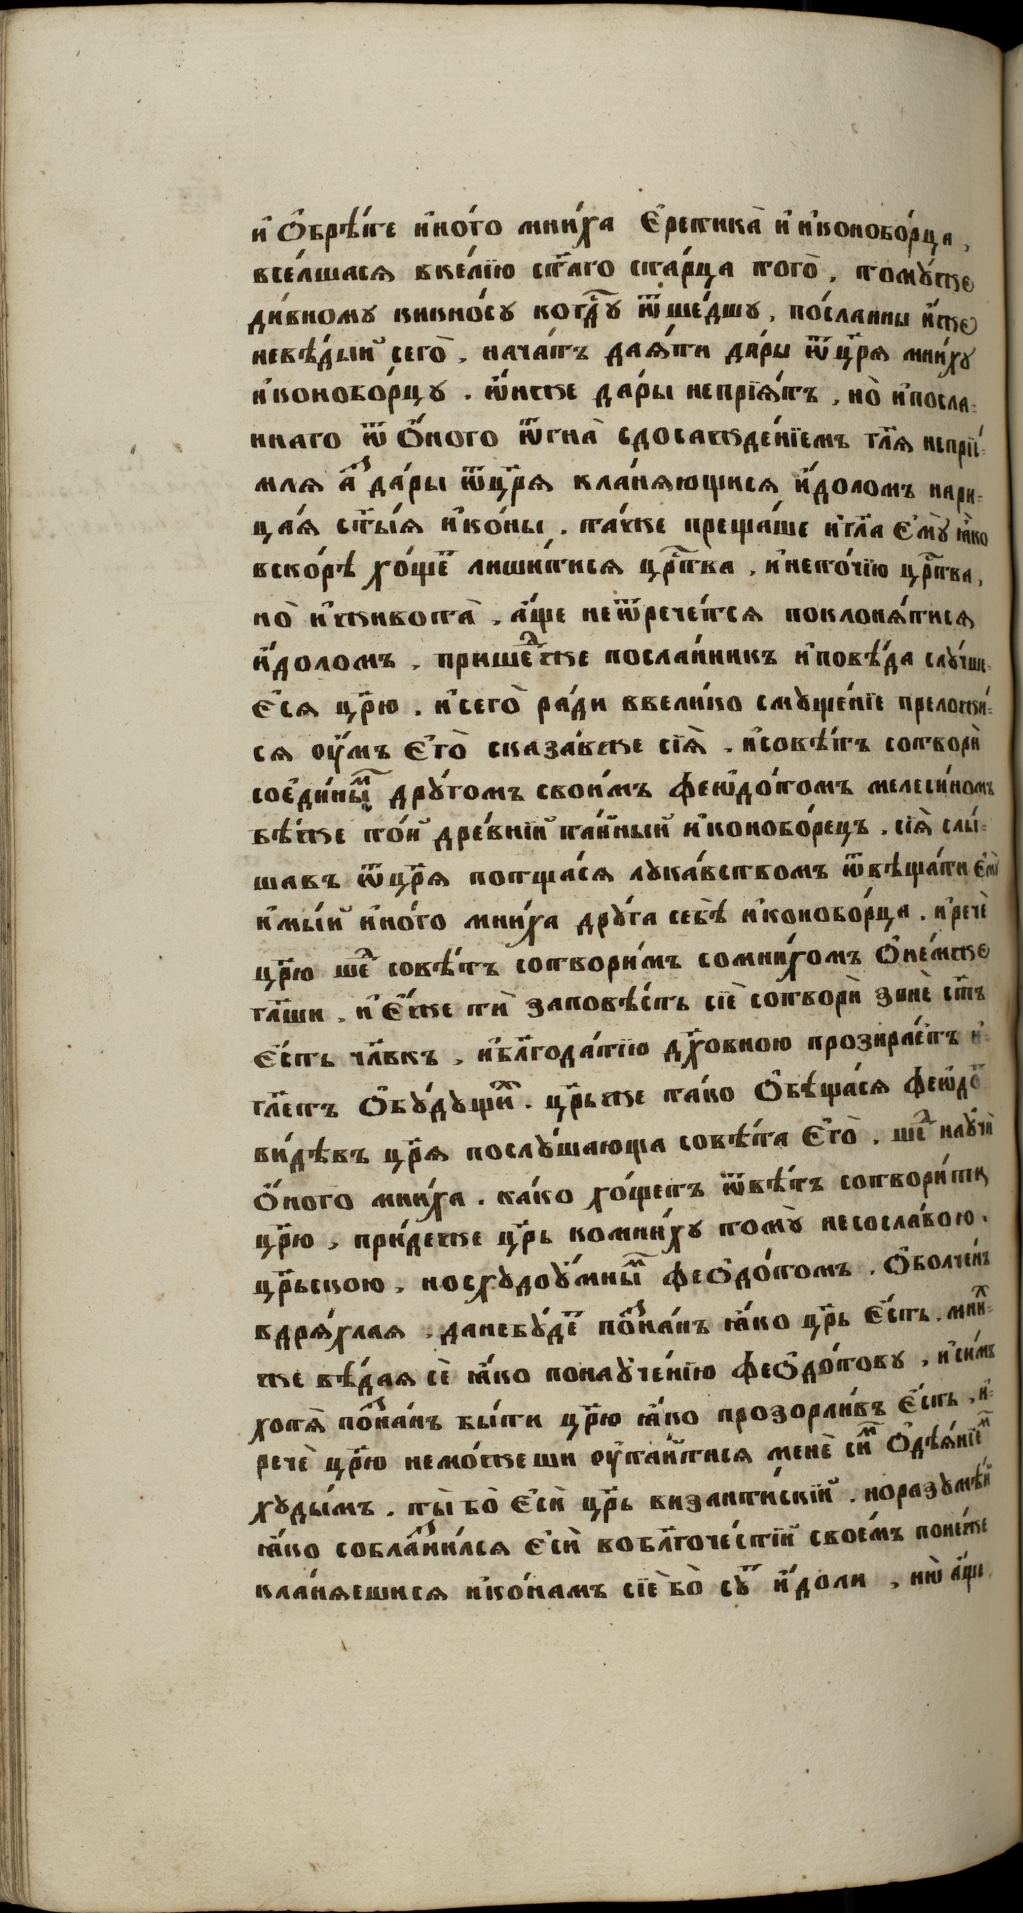 и҆ ѻ҆брѣ́те и҆но́го мни́ха є҆ретика̀ и҆ и҆конобо́рца,
все́лшася вке́лїю ст҃аго ста́рца того̀, тому́же
ди́вному кикно́су когдⷭ҇у ѿше́дшу, по́сланны и҆́же
невѣ́дый сего̀, нача́тъ дая́ти да́ры ѿ цр҃я мни́ху
и҆конобо́рцу. ѻ҆́нже да́ры непрїя́тъ, но̀ и҆посла-
ннаго ѿ ѻ҆́ного ѿгна̀ сдосажде́нїемъ гл҃я непрїи́-
мля а҆́з да́ры ѿцр҃я кла́няющися и҆́доломъ нари-
ца́я ст҃ы́я и҆ко́ны. та́кже преща́ше и҆гл҃а є҆мꙋ̀ ꙗ҆́ко
вско́рѣ хо́щеⷮ лиши́тися црⷭ҇тва, и҆нето́чїю црⷭ҇тва,
но̀ и҆живота̀, а҆́ще неѿрече́тся поклоня́тися
и҆́доломъ, прише́ⷣже посла́нникъ и҆повѣ́да случше
є҆ся цр҃ю. и҆сего̀ ра́ди ввели́ко смуще́нїе преложи́-
ся оу҆́мъ є҆го̀ сказа́вже сїя̀. и҆совѣ́тъ сотворѝ
соє҆ди́ныⷨ дру́гомъ свои́мъ феѡ҆до́томъ мелеси́номъ
бѣ́же то́й дре́внїй та́йный и҆конобо́рецъ. сїя̀ слы́-
шавъ ѿцр҃я потща́ся лука́вствомъ ѿвѣща́ти є҆мꙋ̀
и҆мы́й и҆но́го мни́ха дру́га себѣ̀ и҆конобо́рца. и҆речѐ
цр҃ю ше́ⷣ совѣ́тъ сотвори́мъ сомни́хомъ ѻ҆не́мже
гл҃ши, и҆ є҆́же тѝ заповѣ́сть сїѐ сотворѝ занѐ ст҃ъ
є҆́сть чл҃вкъ, и҆бл҃года́тїю дх҃о́вною прозира́етъ и҆-
гл҃етъ ѻ҆бу́дущиⷯ. цр҃ьже та́ко ѻ҆бѣща́ся феѡ҆до́ⷮ
ви́дѣвъ цр҃я послу́шающа совѣ́та є҆го̀, ше́ⷣ наꙋчѝ
ѻ҆́ного мни́ха. ка́ко хо́щетъ ѿвѣ́тъ сотвори́ти
цр҃ю, при́деже цр҃ь комни́ху тому̀ несосла́вою
цр҃ьскою, носхудоу҆́мныⷨ феѻ҆до́томъ. ѻ҆болче́нъ
вдря́хлая, данебу́деⷮ позна́нъ ꙗ҆́ко цр҃ь є҆́сть. мни́ⷯ-
же вѣ́дая сѐ ꙗ҆́ко понауче́нїю феѻ҆до́тову, и҆си́мъ
хотя̀ позна́нъ бы́ти цр҃ю ꙗ҆́ко прозорли́въ є҆́сть, и҆-
речѐ цр҃ю немо́жеши оу҆таи́тися менѐ си́ⷨ ѻ҆дѣя́нїеⷨ
худы́мъ. ты̀ бо̀ є҆сѝ цр҃ь византи́йскїй. норазумѣ́й
ꙗ҆́ко соблазни́лся є҆сѝ вобл҃гоче́стїй свое́мъ поне́же
кла́няешися и҆ко́намъ сїѐ бо̀ су́ⷮ и҆́доли, ннѡ҃ а҆́ще